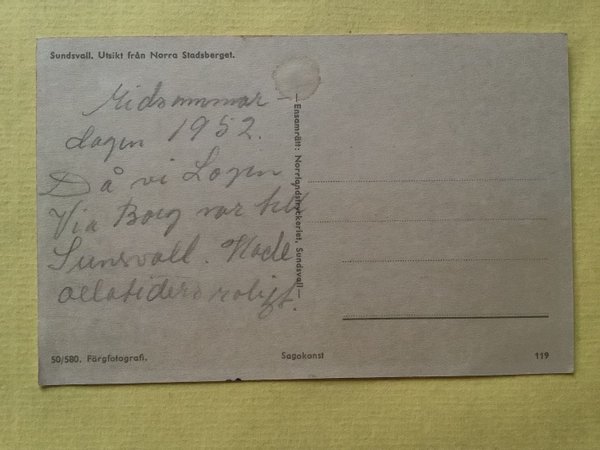 Sundsvall. Utsikt från Norra Stadsberget.
Midsommar-
dagen 1952.
Då vi Lagen
Via Borg var till
Sunsvall. Hade
oelatideroroligt.
— Ensamrätt: Norrlandstryckeriet, Sundsvall —
50/580. Färgfotografi.
Sagokonst
119